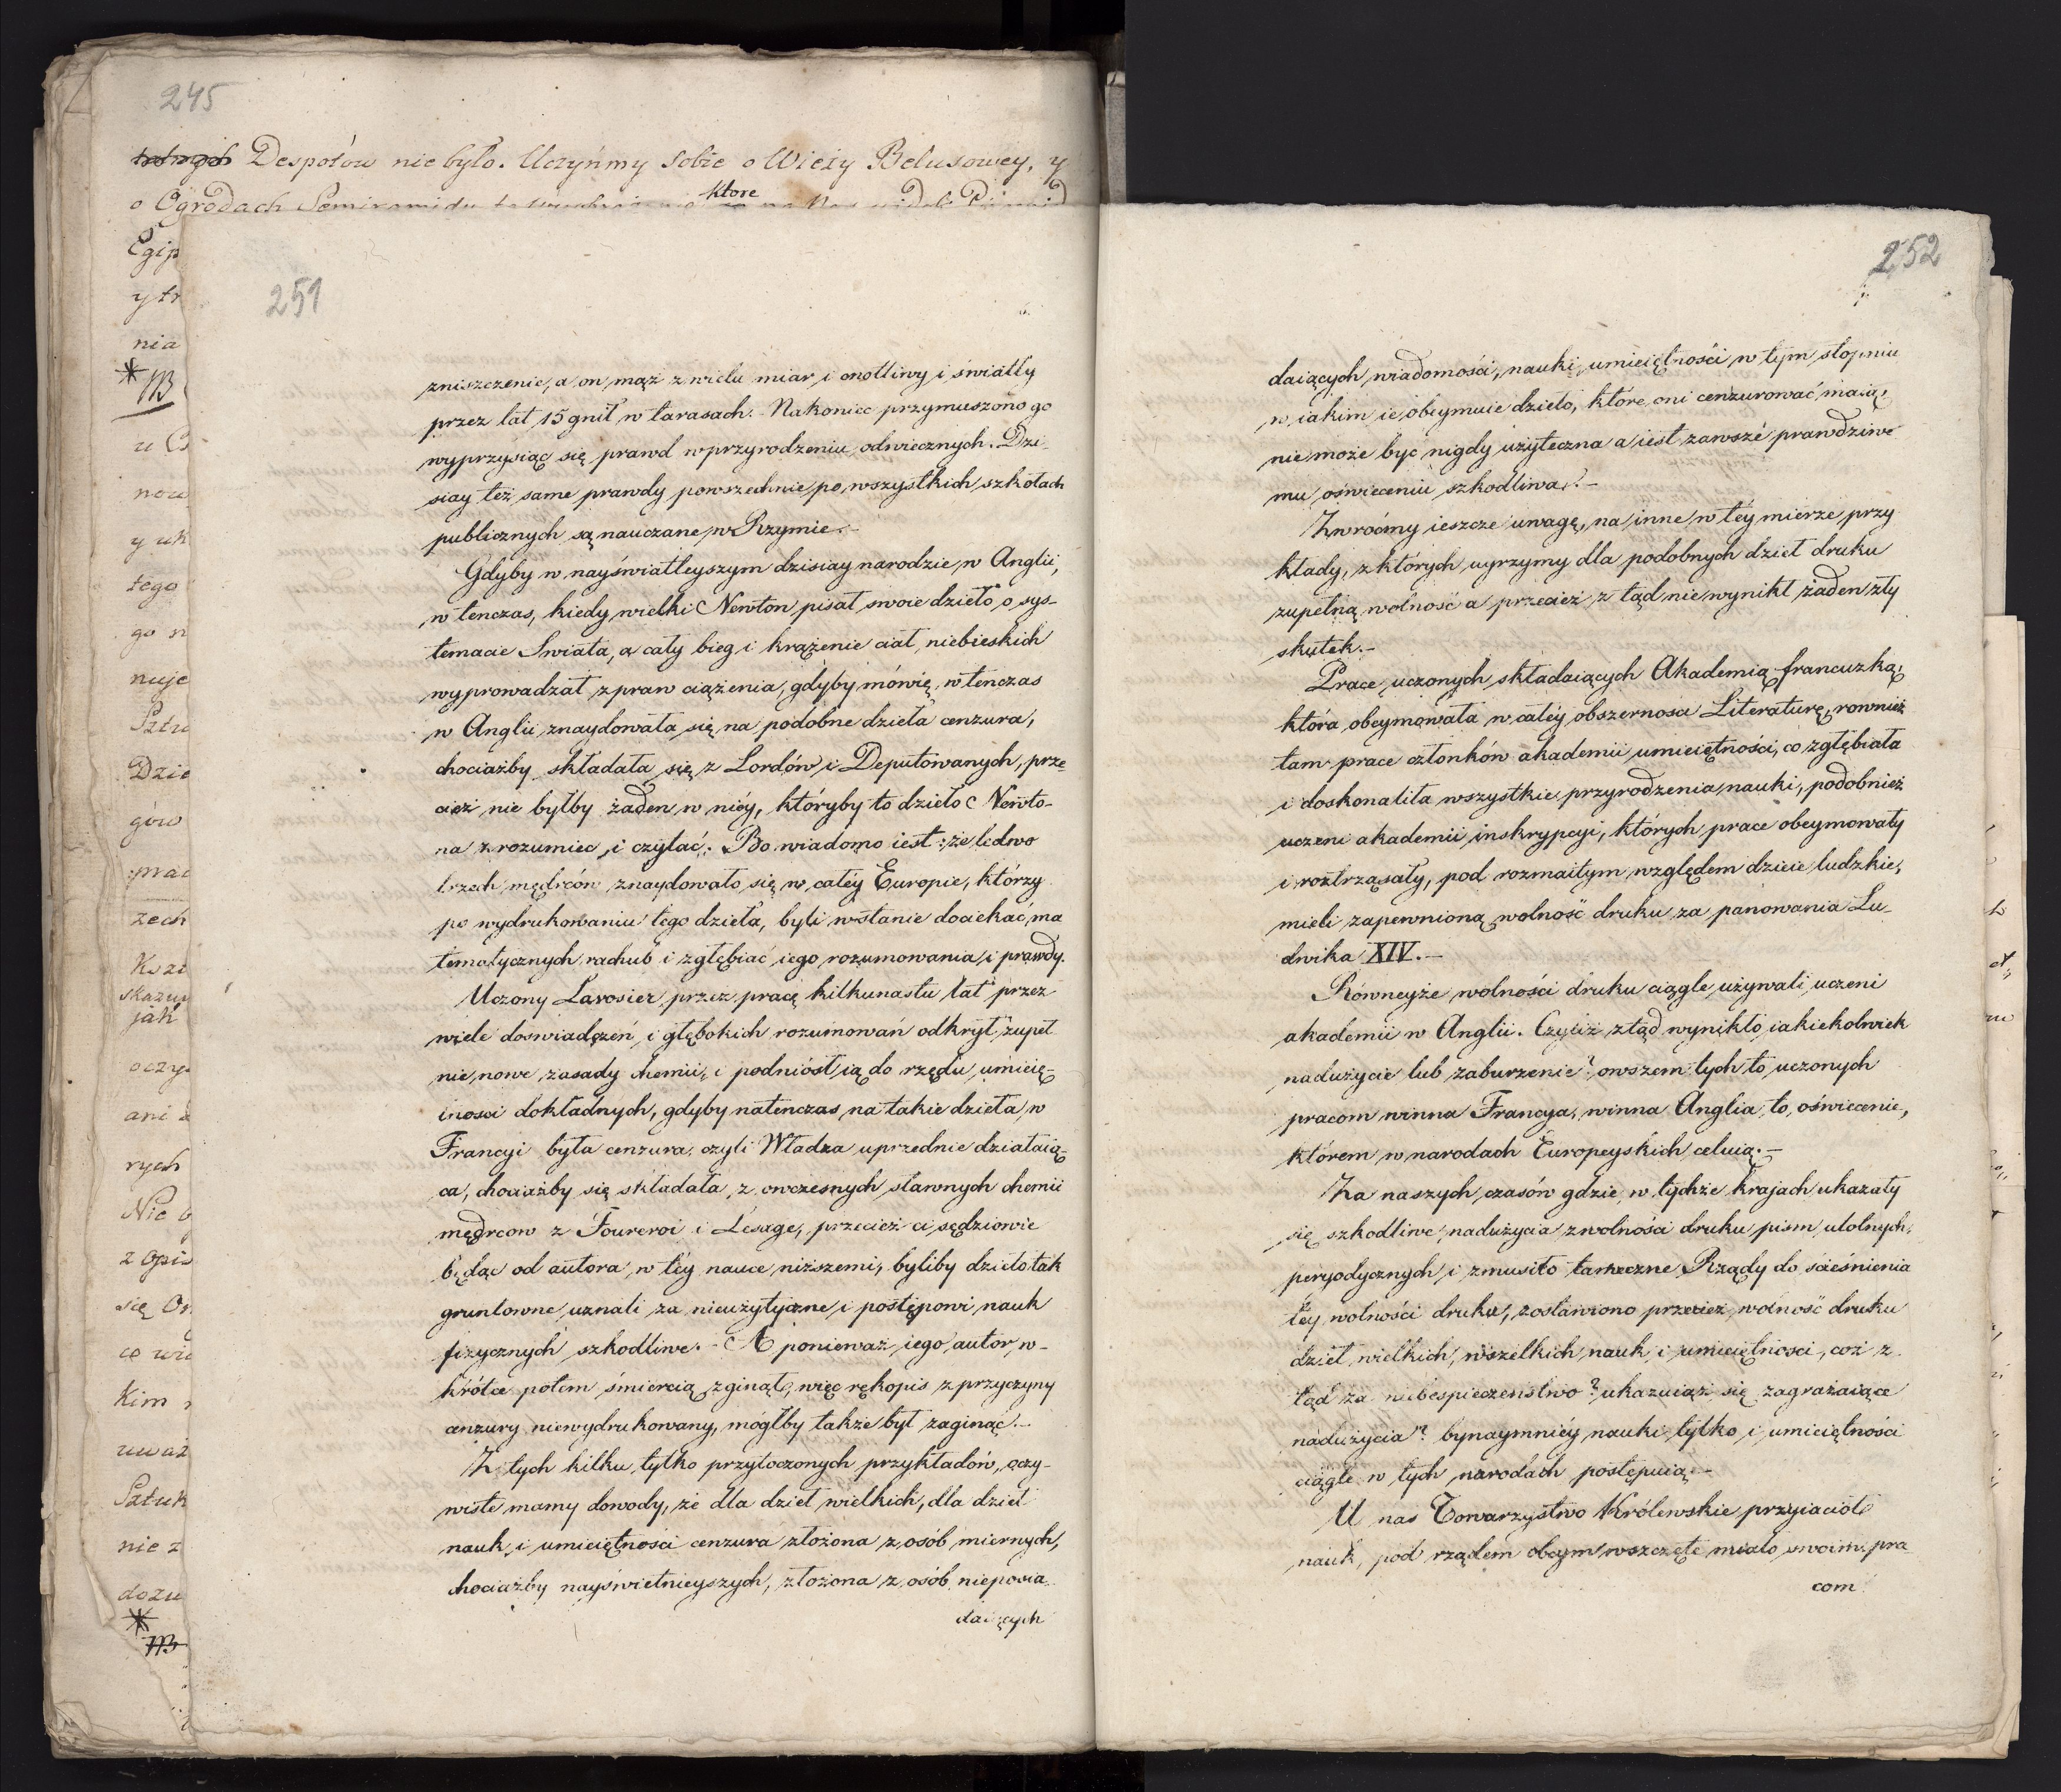 245
Despotów nie było. Uczyńmy Sobie o Wieży Belusowey, y
które
o Ogrodach
Egip
y tr
nia
NB
u
now
y uk
tego
go n
nuje
Sztu
Dzie
gów
prac
zech
Ksze
skazuj
jak
oczy
ani
rych
Nic
z opis
się
co wi
kim
uważ
Sztuk
nie z
dozu
NB
251
zniszczenie, a on mąż z wielu miar i cnotliwy i światły
przez lat 15 gnił w tarasach. - Nakoniec przymuszono go
wyprzysiąc się prawd w przyrodzeniu odwiecznych. Dzi-
siay też same prawdy powszechnie po wszystkich szkołach
publicznych są nauczane w Rzymie. -
Gdyby w nayświatleyszym dzisiay narodzie, w Anglii,
w tenczas, kiedy wielki Newton pisał swoie dzieło o sys-
temacie Swiata, a cały bieg i krążenie ciał niebieskich
wyprowadzał z praw ciążenia, gdyby, mówię, w tenczas
w Anglii znaydowała się na podobne dzieła cenzura,
chociażby składała się z Lordów i Deputowanych, prze
cież nie byłby żaden w niéy, któryby to dzieło Newto-
na zrozumiec i czytać. Bo wiadomo iest: że ledwo
trzech mędrców znaydowało się w całéy Europie, którzy
po wydrukowaniu tego dzieła, byli w stanie dociekać ma
tematycznych rachub i zgłębiać iego rozumowania i prawdy.
Uczony Lavosier przez pracę kilkunastu lat przez
wiele doswiadczeń i głębokich rozumowań odkrył zupeł
nie nowe zasady chemii, i podniósł ią do rzędu umieię-
tnosci dokładnych, gdyby natenczas na takie dzieła w
Francyi była cenzura, czyli Władza uprzednie działaią-
ca, chociażby się składała z owczesnych sławnych chemii
mędrcow z Fourcroi i Lesage, przecież ci sędziowie
będąc od autora w téy nauce niższemi, byliby dzieło tak
gruntowne uznali za nieużytyczne i postępowi nauk
fizycznych szkodliwe. - A ponieważ iego autor w-
krótce potem śmiercią zginął, więc rękopis z przyczyny
cenzury niewydrukowany, mógłby także był zaginąć. -
Z tych kilku tylko przytoczonych przykładów, oczy-
wiste mamy dowody, że dla dzieł wielkich, dla dzieł
nauk i umieiętności cenzura złożona z osób miernych,
chociażby nayświetnieyszych, złożona z osób nieposia
daiących
252
daiących wiadomości, nauki, umieiętności w tym stopniu
w iakim ie obeymuie dzieło, które oni cenzurować maią,
nie może być nigdy użyteczna a iest zawsze prawdziwe
mu oświeceniu szkodliwa. -
Zwroćmy ieszcze uwagę na inne w téy mierze przy
kłady, z których uyrzymy dla podobnych dzieł druku
zupełną wolność a przecież z tąd nie wynikł żaden zły
skutek. -
Prace uczonych składaiących Akademią francuzką,
która obeymowała w całéy obszernosci Literaturę, rownież
tam prace członków akademii umieiętności, co zgłębiała
i doskonaliła wszystkie przyrodzenia nauki, podobnież
uczeni akademii inskrypcyi, których prace obeymowały
i roztrząsały, pod rozmaitym względem dzieie ludzkie,
mieli zapewnioną wolność druku za panowania Lu-
dwika XIV. -
Równeyże wolności druku ciągle używali uczeni
akademii w Anglii. Czyliż ztąd wynikło iakiekolwiek
nadużycie lub zaburzenie? owszem tych to uczonych
pracom winna Francya, winna Anglia to oświecenie,
którem w narodach Europeyskich celuią. -
Za naszych czasów gdzie w tychże krajach ukazały
się szkodliwe nadużycia z wolności druku pism ulotnych,
peryodycznych i zmusiło tameczne Rządy do ścieśnienia
téy wolności druku, zostawiono przecież wolność druku
dzieł wielkich, wszelkich nauk i umieiętnosci, coż z
tąd za niebespieczeństwo? ukazuiąż się zagrażaiące
nadużycia? bynaymniéy nauki tylko i umieiętności
ciągle w tych narodach postępuią. -
U nas Towarzystwo Królewskie przyiaciół
nauk, pod rządem obcym wszczęte miało swoim pra
com